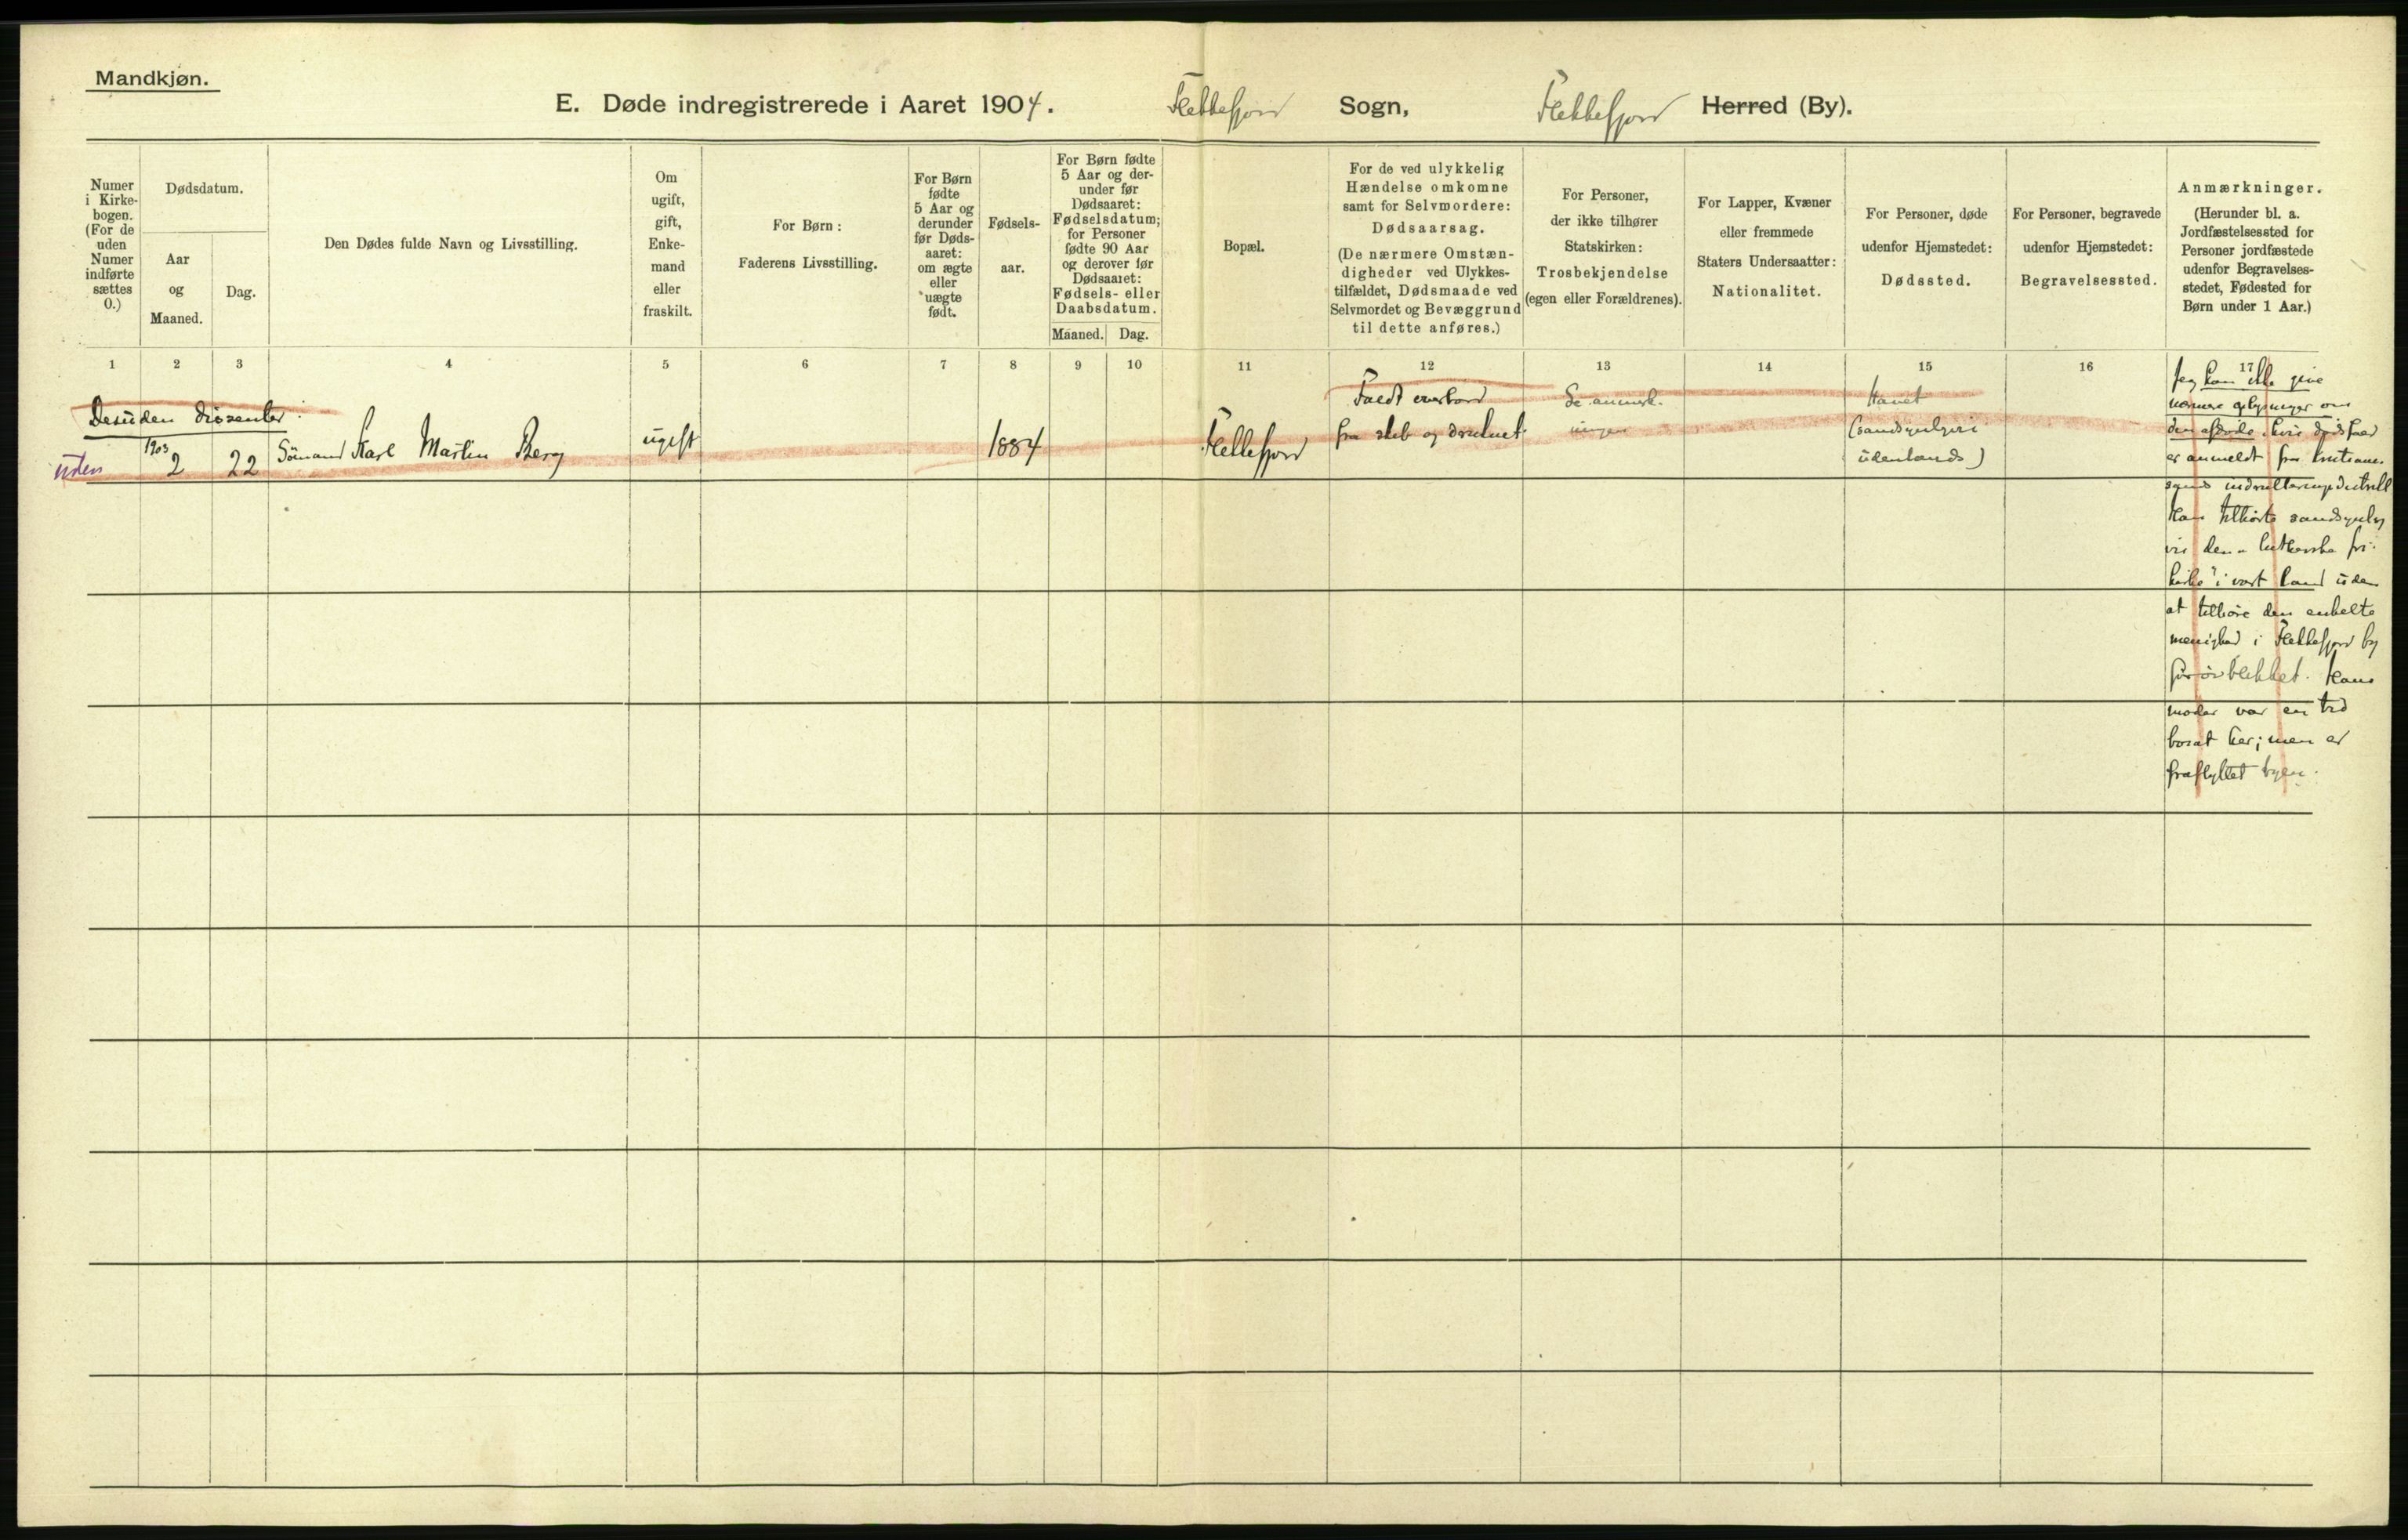 Mandkjøn.
E. Døde indregistrerede i Aaret 1904. Flekkefjord Sogn, Flekkefjord Herred (By).
Numer
i Kirke-
bogen.
(For de
uden
Numer
indførte
sættes
0.)
Dødsdatum.
Aar
og
Maaned.
Dag.
Den Dødes fulde Navn og Livsstilling.
Om
ugift,
gift,
Enke-
mand
eller
fraskilt.
For Børn:
Faderens Livsstilling.
For Børn
fødte
5 Aar og
derunder
før Døds-
aaret:
om ægte
eller
uægte
født.
Fødsels-
aar.
For Børn fødte
5 Aar og der-
under før
Dødsaaret:
Fødselsdatum;
for Personer
fødte 90 Aar
og derover før
Dødsaaret:
Fødsels- eller
Daabsdatum.
Maaned. Dag.
Bopæl.
For de ved ulykkelig
Hændelse omkomne
samt for Selvmordere:
Dødsaarsag.
(De nærmere Omstæn-
digheder ved Ulykkes-
tilfældet, Dødsmaade ved
Selvmordet og Bevæggrund
til dette anføres.)
For Personer,
der ikke tilhører
Statskirken:
Trosbekjendelse
(egen eller Forældrenes).
For Lapper, Kvæner
eller fremmede
Staters Undersaatter:
Nationalitet.
For Personer, døde
udenfor Hjemstedet:
Dødssted.
For Personer, begravede
udenfor Hjemstedet:
Begravelsessted.
Anmærkninger.
(Herunder bl. a.
Jordfæstelsessted for
Personer jordfæstede
udenfor Begravelses-
stedet, Fødested for
Børn under 1 Aar.)
1 2 3 4 5 6 7 8 9 10 11 12 13 14 15 16 17
Desuden dissenter:
uden
1903
2
22
Sömand Karl Martin Berg
ugift
1884
Flekkefjord
Faldt overbord
fra skib og druknet.
Se anmerk-
ningen
Havet
(sandsynligvis
udenlands)
Jeg kan ikke give
nærmere oplysninger om
den afdøde, hvis dødsfald
er anmeldt fra Kristian-
sands indrulleringsdistrikt
Han tilhørte sandsynlig
vis den "lutherske fri-
kirke" i vort land uden
at tilhøre den enkelte
menighed i Flekkefjord by
for öieblikket. Hans
moder var en tid
bosat her; men er
fraflyttet byen.